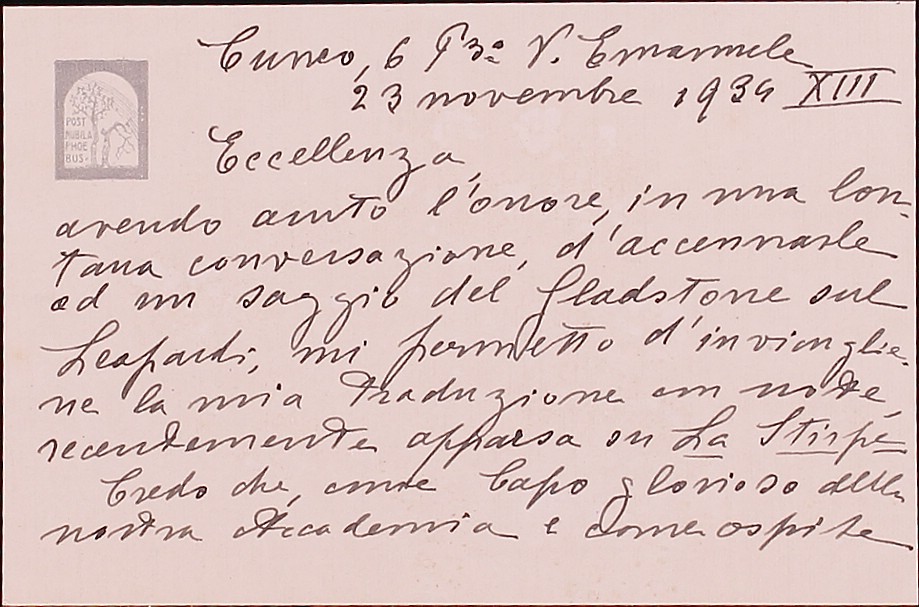 Cuneo, 6 P.za V. Emanuele
23 novembre 1934 XIII
POST
NUBILA
PHOE
BUS
Eccellenza,
avendo avuto l'onore, in una lon-
tana conversazione, d'accennarle
ad un saggio del Gladstone sul
Leopardi, mi permetto d'inviarglie-
ne la mia traduzione con note,
recentemente apparsa su La Stirpe
Credo che, come Capo glorioso della
nostra Accademia e come ospite